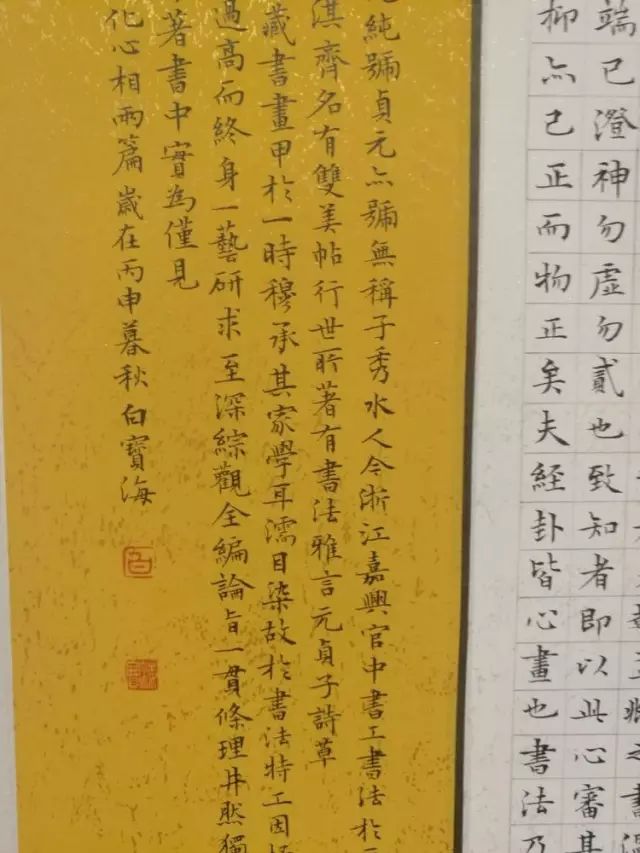 端己澄神勿虛勿貳也致知者即以此心審其
抑亦己正而物正矣夫經卦皆心畫也書法乃
純號貞元亦號無稱子秀水人今浙江嘉興官中書工書法於
淇齊名有雙美帖行世所著有書法雅言元貞子詩草
藏書畫甲於一時穆承其家學耳濡目染故於書法特工因
過高而終身一藝研求至深綜觀全編論旨一貫條理井然獨
著書中實為僅見
化心相兩篇歲在丙申暮秋白寶海